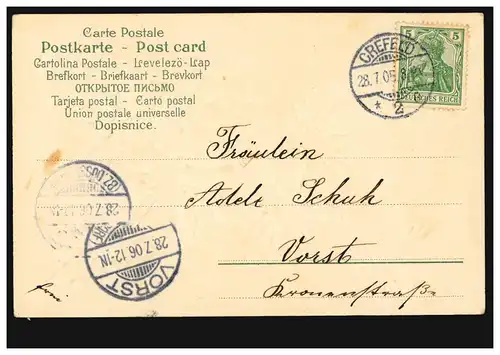 Carte Postale
Postkarte - Post card
Cartolina Postale - Levelező-Lap
Brefkort - Briefkaart - Brevkort
ОТКРЫТОЕ ПИСЬМО
Tarjeta postal - Carto postal
Union postale universelle
Dopisnice.
5 5
DEUTSCHES REICH
CREFELD
28.7.06.
* 2
Fräulein
Adele Schuh
Vorst
Kronenstraße
28.7.06.12-1N
28.7.06.12-1N
VORST